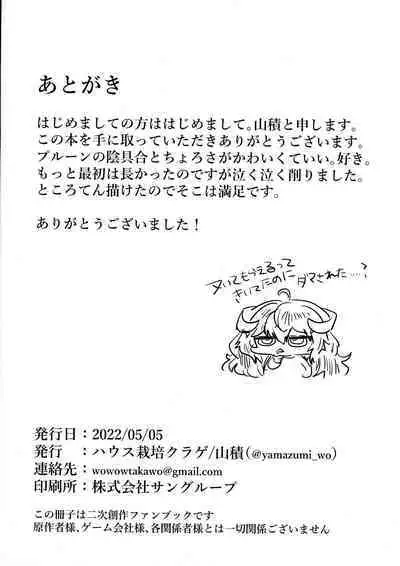 あとがき
はじめましての方ははじめまして。山積と申します。
この本を手に取っていただきありがとうございます。
プルーンの陰具合とちょろさがかわいくていい。好き。
もっと最初は長かったのですが泣く泣く削りました。
ところてん描けたのでそこは満足です。
ありがとうございました！
ヌいてもらえるって
きいてたのに
ダマされた……?
発行日：2022/05/05
発行　：ハウス栽培クラゲ/山積(@yamazumi_wo)
連絡先：wowowtakawo@gmail.com
印刷所：株式会社サングループ
この冊子は二次創作ファンブックです
原作者様、ゲーム会社様、各関係者様とは一切関係ございません